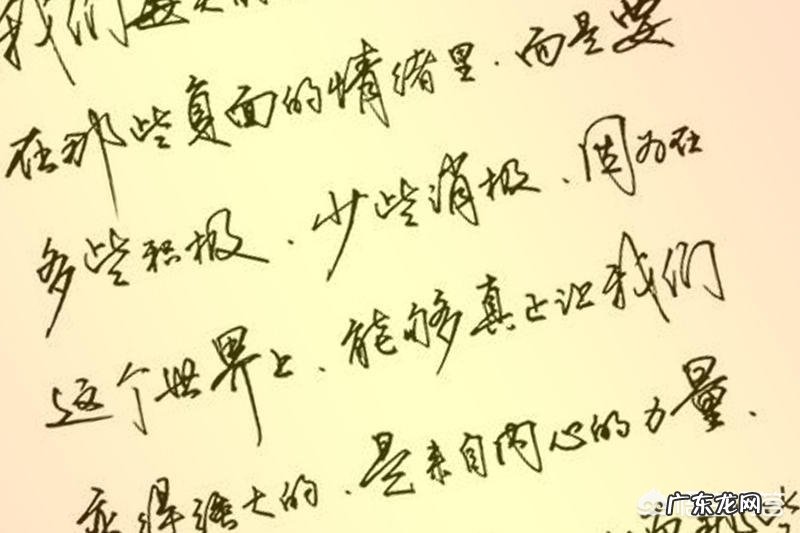 我们每天的
在那些负面的情绪里.而是要
多些积极、少些消极、因为在
这个世界上、能够真正让我们
变得强大的、是来自内心的力量.
广东龙网